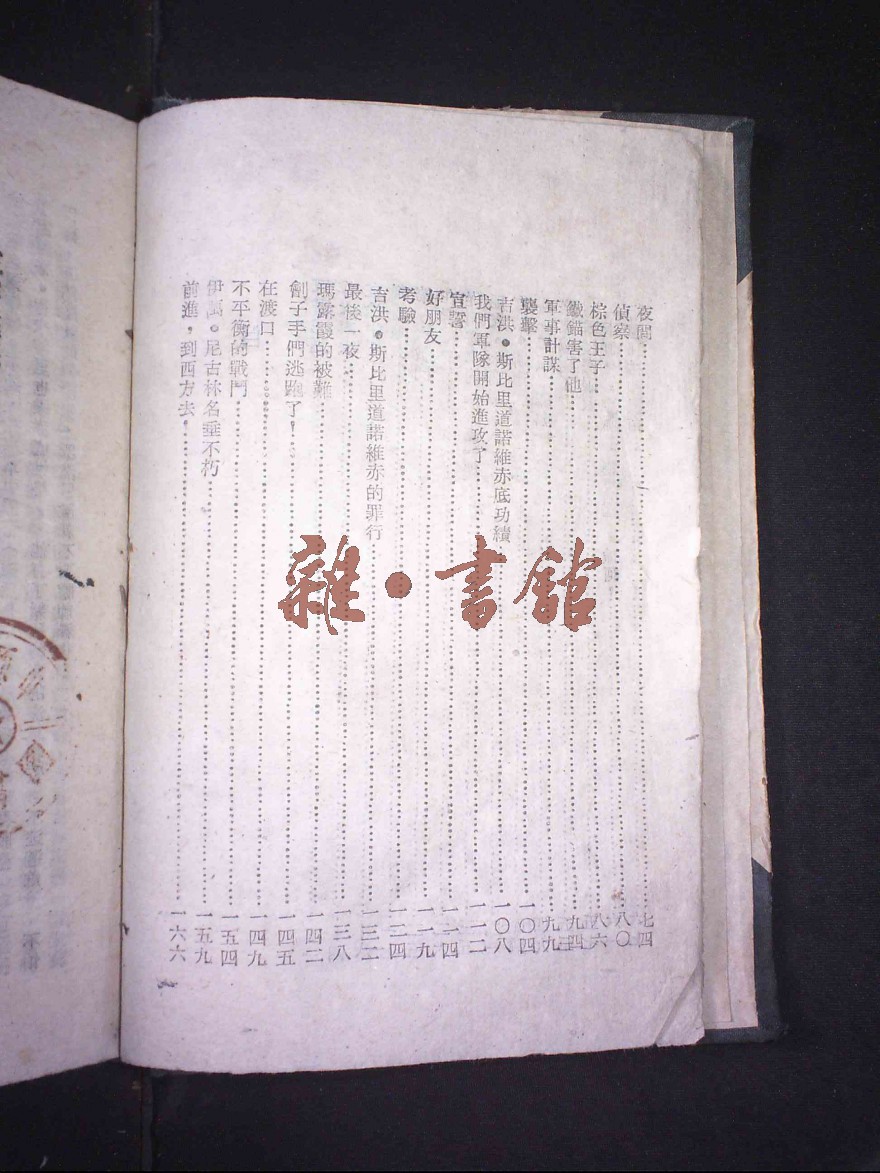 夜間……七四
偵察……八〇
棕色王子……八六
鐵錨害了他……九四
軍事計謀……九九
襲擊……一〇四
吉洪·斯比里道諾維赤底功績……一〇八
我們軍隊開始進攻了……一一二
宣誓……一一四
好朋友……一一九
考驗……一二四
吉洪·斯比里道諾維赤的罪行……一三二
最後一夜……一三八
瑪露霞的被難……一四二
劊子手們逃跑了！……一四五
在渡口……一四九
不平衡的戰鬥……一五四
伊萬·尼古林名垂不朽……一五九
前進，到西方去！……一六六
雜·書館